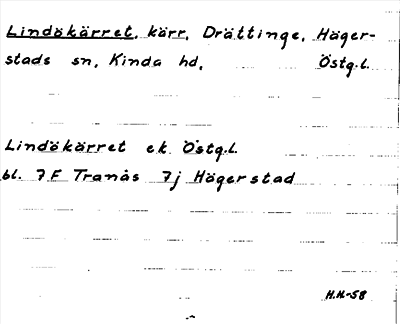 Lindökärret, kärr, Drättinge, Häger-
stads sn, Kinda hd, Östg.l.
Lindökärret ek. Östg.l.
bl. 7F Tranås 7j Högerstad
H.H.-58